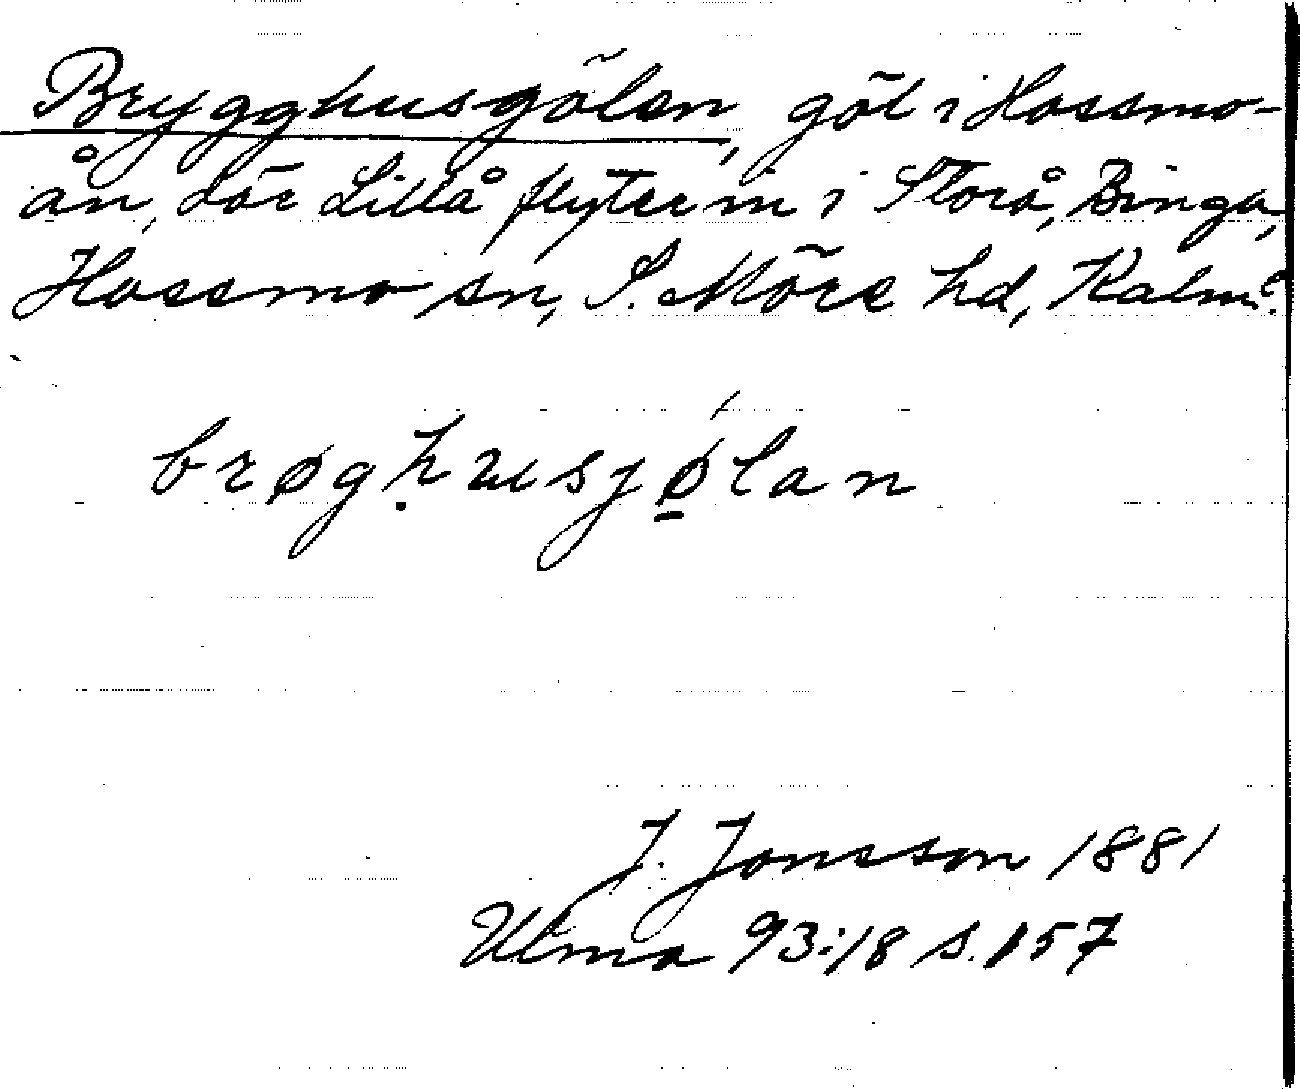 Brygghusgölen, göl i Hossmo-
ån, där Lillå flyter in i Storå, Binga,
Hossmo sn, S. Möre hd, Kalm.
brøgḥusjø̱lan
J. Jonsson 1881
Ulma 93:18 s. 157